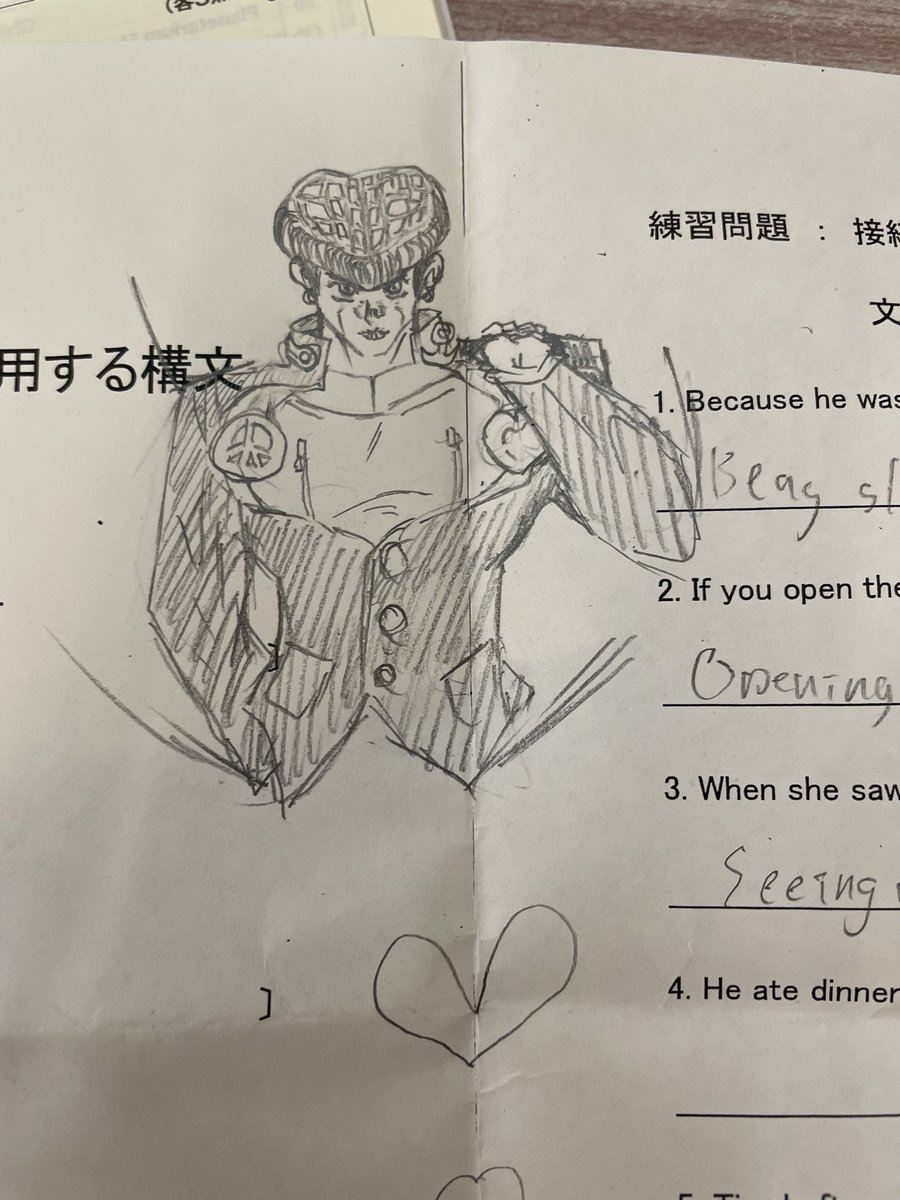 用する構文
]
]
練習問題 : 接続
文
1. Because he was
Beag sl
2. If you open the
Opening
3. When she saw
Seeing
4. He ate dinner